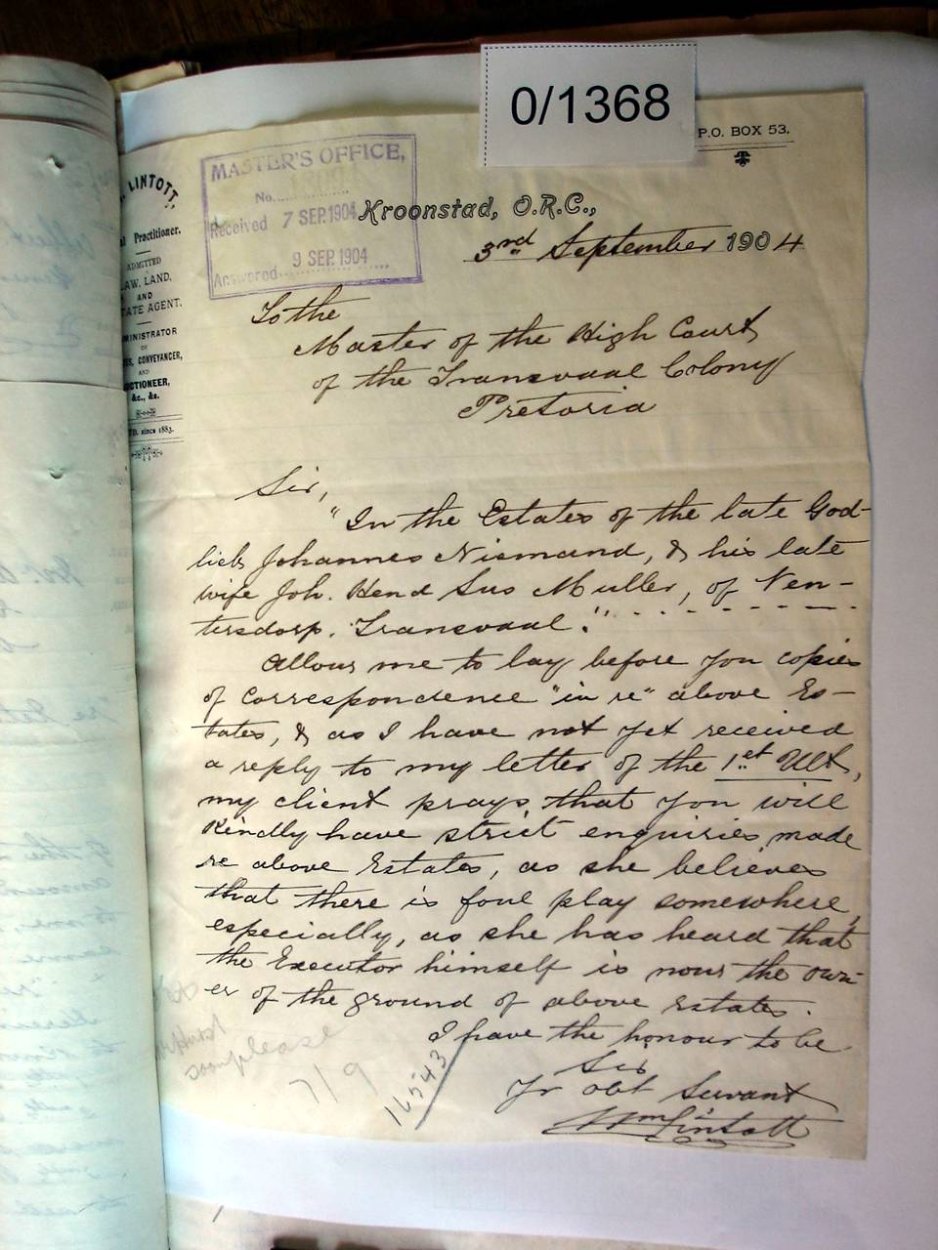 0/1368
P.O. BOX 53.
LINTOTT,
Practitioner.
ADMITTED
LAW, LAND,
AND
ESTATE AGENT.
ADMINISTRATOR
OF
CONVEYANCER,
AND
AUCTIONEER,
&c., &c.
since 1883.
MASTER'S OFFICE,
No.
Received 7 SEP. 1904
Answered 9 SEP. 1904
Kroonstad, O.R.C.,
3rd September 1904
To the
Master of the High Court
of the Transvaal Colony
Pretoria
Sir,
"In the Estates of the late God-
lieb Johannes Niemand, & his late
wife Joh. Hend Sus Muller, of Ven-
tersdorp. Transvaal."
Allow me to lay before you copies
of correspondence "in re" above Es-
tates, & as I have not yet received
a reply to my letter of the 1st Ult,
my client prays that you will
kindly have strict enquiries made
re above Estates, as she believes
that there is foul play somewhere,
especially, as she has heard that
the Executor himself is now the own-
er of the ground of above Estates.
I have the honour to be
Sir
Yr obt Servant
Wm Lintott
please
7/9
16543